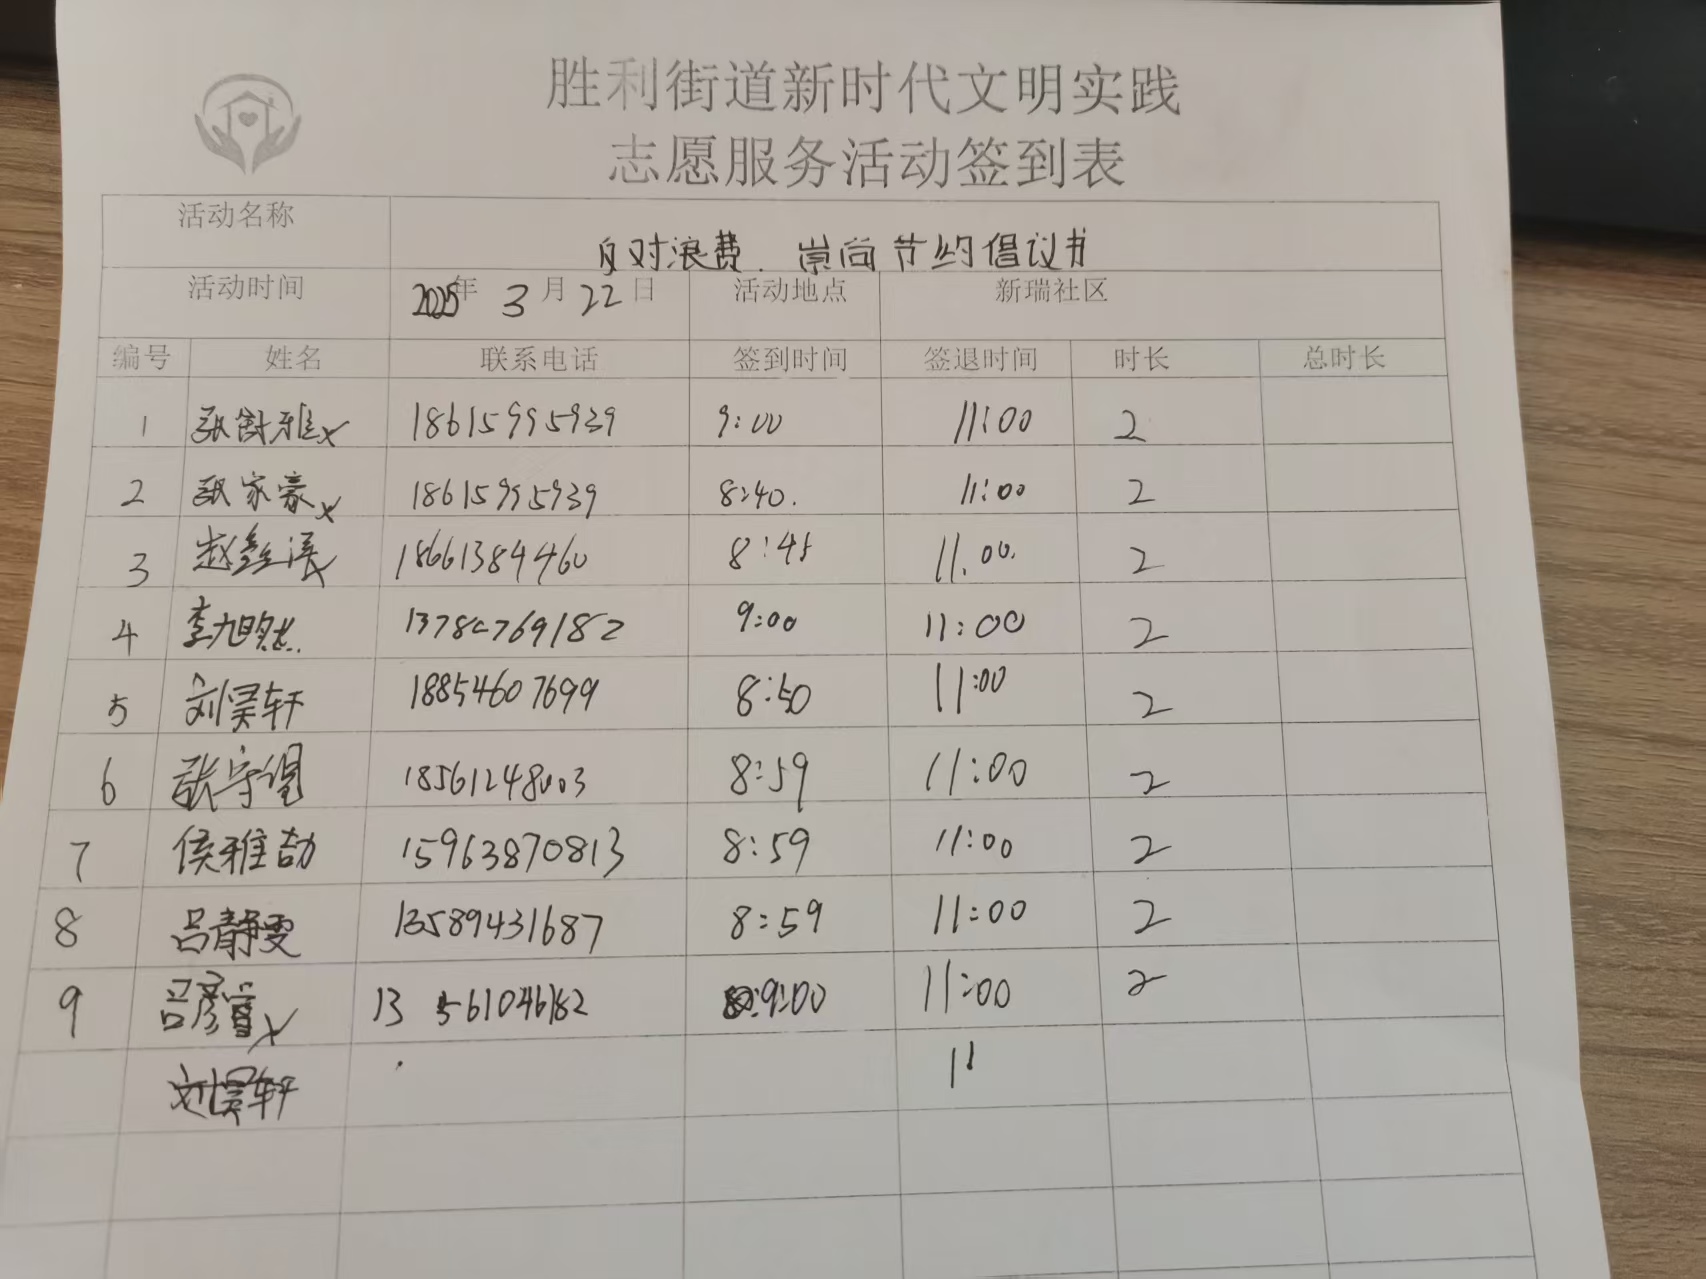 胜利街道新时代文明实践
志愿服务活动签到表
活动名称 对浪费. 崇尚节约倡议书
活动时间 2025年3月22日 活动地点 新瑞社区
编号 姓名 联系电话 签到时间 签退时间 时长 总时长
1 张舒雅x 18615995939 9:00 11:00 2
2 张家豪x 18615995939 8:40. 11:00 2
3 赵鑫 18661384460 8:45 11.00. 2
4 李旭然. 9:00 11:00 2
5 刘昊轩 18854607699 8:50 11:00 2
6 张守 18561248003 8:59 11:00 2
7 侯雅喆 15963870813 8:59 11:00 2
8 吕静雯 13589431687 8:59 11:00 2
9 吕彦睿x 13561046182 9:00 11:00 2
刘昊轩 11